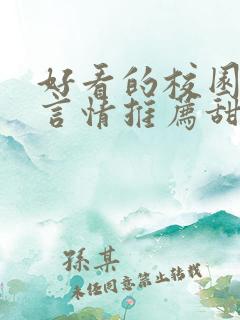 好看的校园
言情推荐甜
孫某
未经同意禁止转载